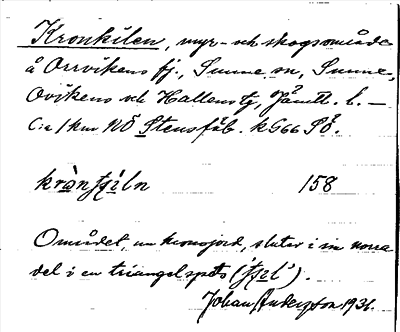 Kronkilen, myr- och skogsområde
å Orrvikens fj., Sunne sn, Sunne,
Ovikens och Hallens tg, Jämtl. l. —
C:a 1 km NÖ Stensfäb. kG66 SÖ.
krànʃɟiln 158
Området, en kronojord, slutar i sin norra
del i en triangelspets ('kil').
Johan Anderzon 1936.